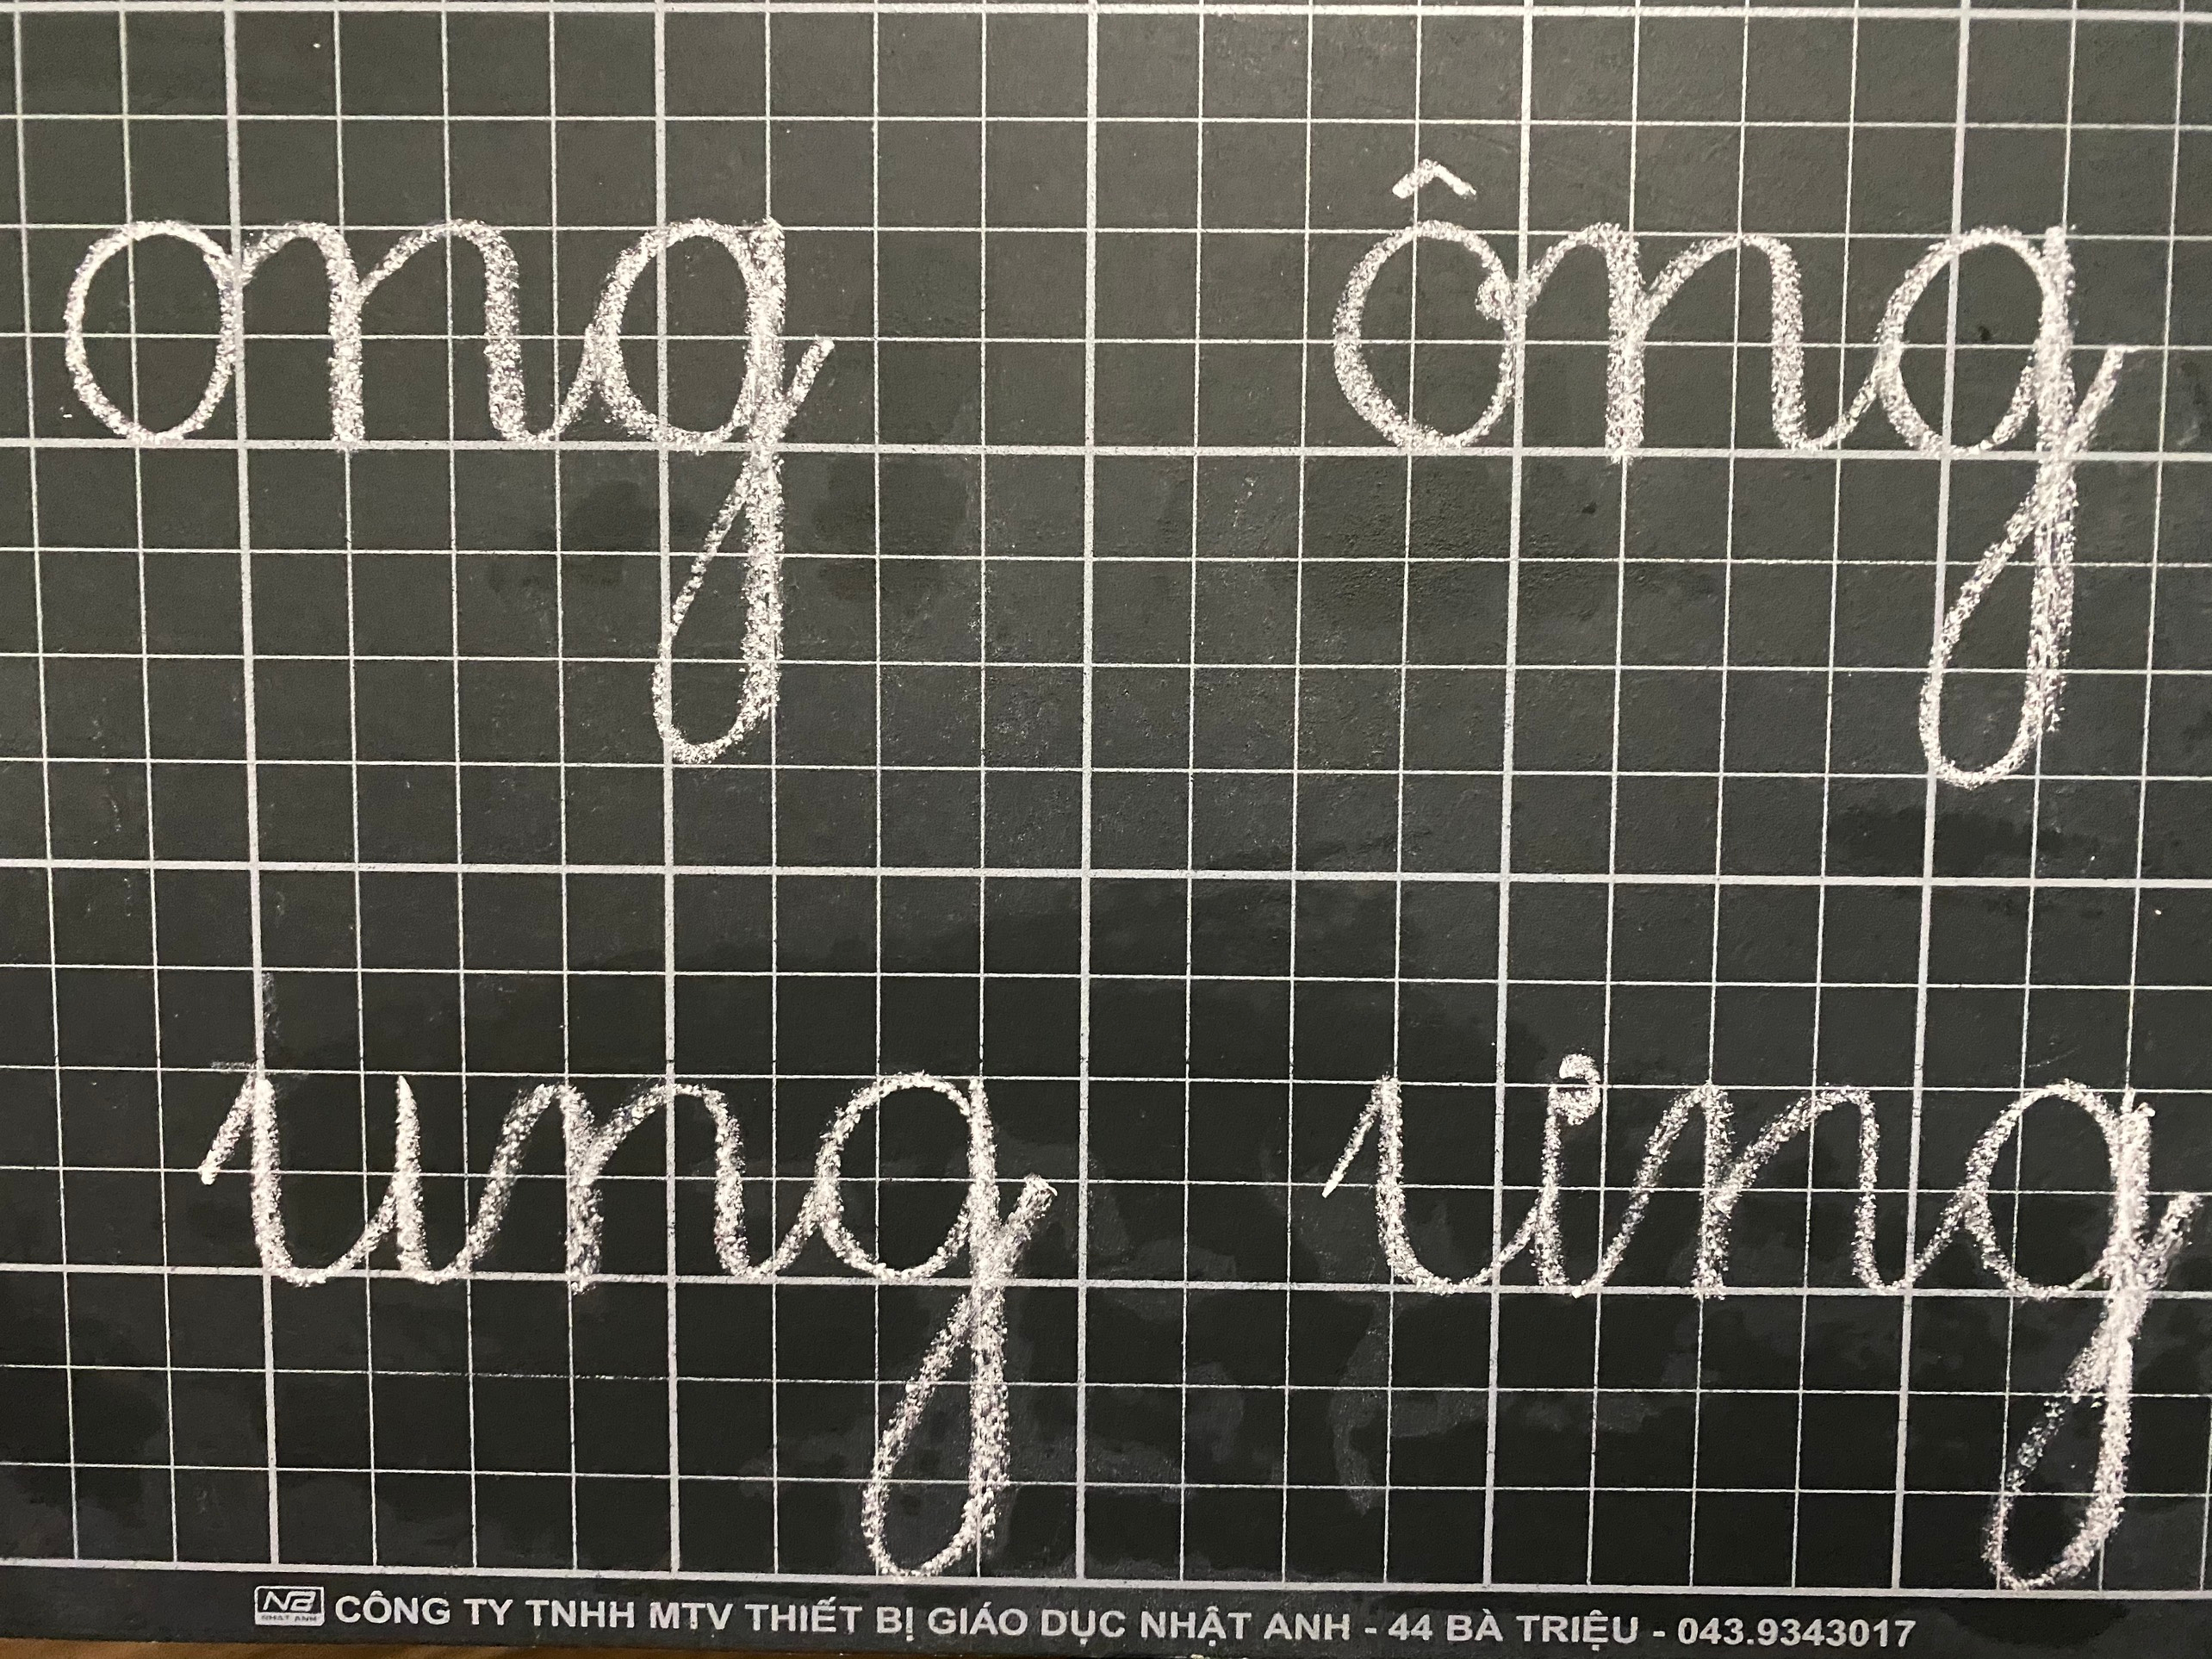 ong ông
ung ưng
NA NHAT ANH CÔNG TY TNHH MTV THIẾT BỊ GIÁO DỤC NHẬT ANH - 44 BÀ TRIỆU - 043.9343017